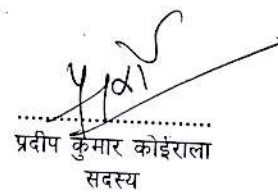 प्रदीप कुमार कोईराला
सदस्य